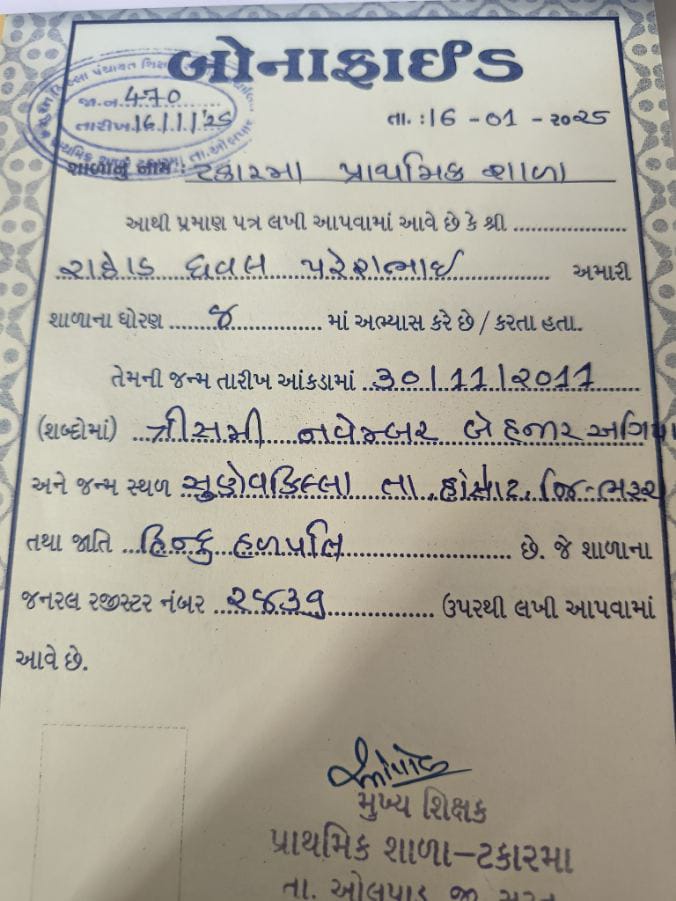 બોનાફાઈડ
જા.ન. 470
તારીખ 16/1/'25
તા. : 16 - 01 - ૨૦૨૫
શાળાનું નામ : ટકારમા પ્રાથમિક શાળા
આથી પ્રમાણ પત્ર લખી આપવામાં આવે છે કે શ્રી ....................
રાઠોડ ધવલ પરેશભાઈ અમારી
શાળાના ધોરણ ........ ૪ ............ માં અભ્યાસ કરે છે / કરતા હતા.
તેમની જન્મ તારીખ આંકડામાં ..30/11/૨૦11
(શબ્દોમાં) ત્રીસમી નવેમ્બર બે હજાર અગિયા
અને જન્મ સ્થળ સુણેવકલ્લા તા. હાંસોટ, જિ-ભરૂચ
તથા જાતિ ...હિન્દુ હળપતિ.................... છે. જે શાળાના
જનરલ રજીસ્ટર નંબર ..૨૪૩૭.............. ઉપરથી લખી આપવામાં
આવે છે.
મુખ્ય શિક્ષક
પ્રાથમિક શાળા-ટકારમા
તા. ઓલપાડ જી. સુરત